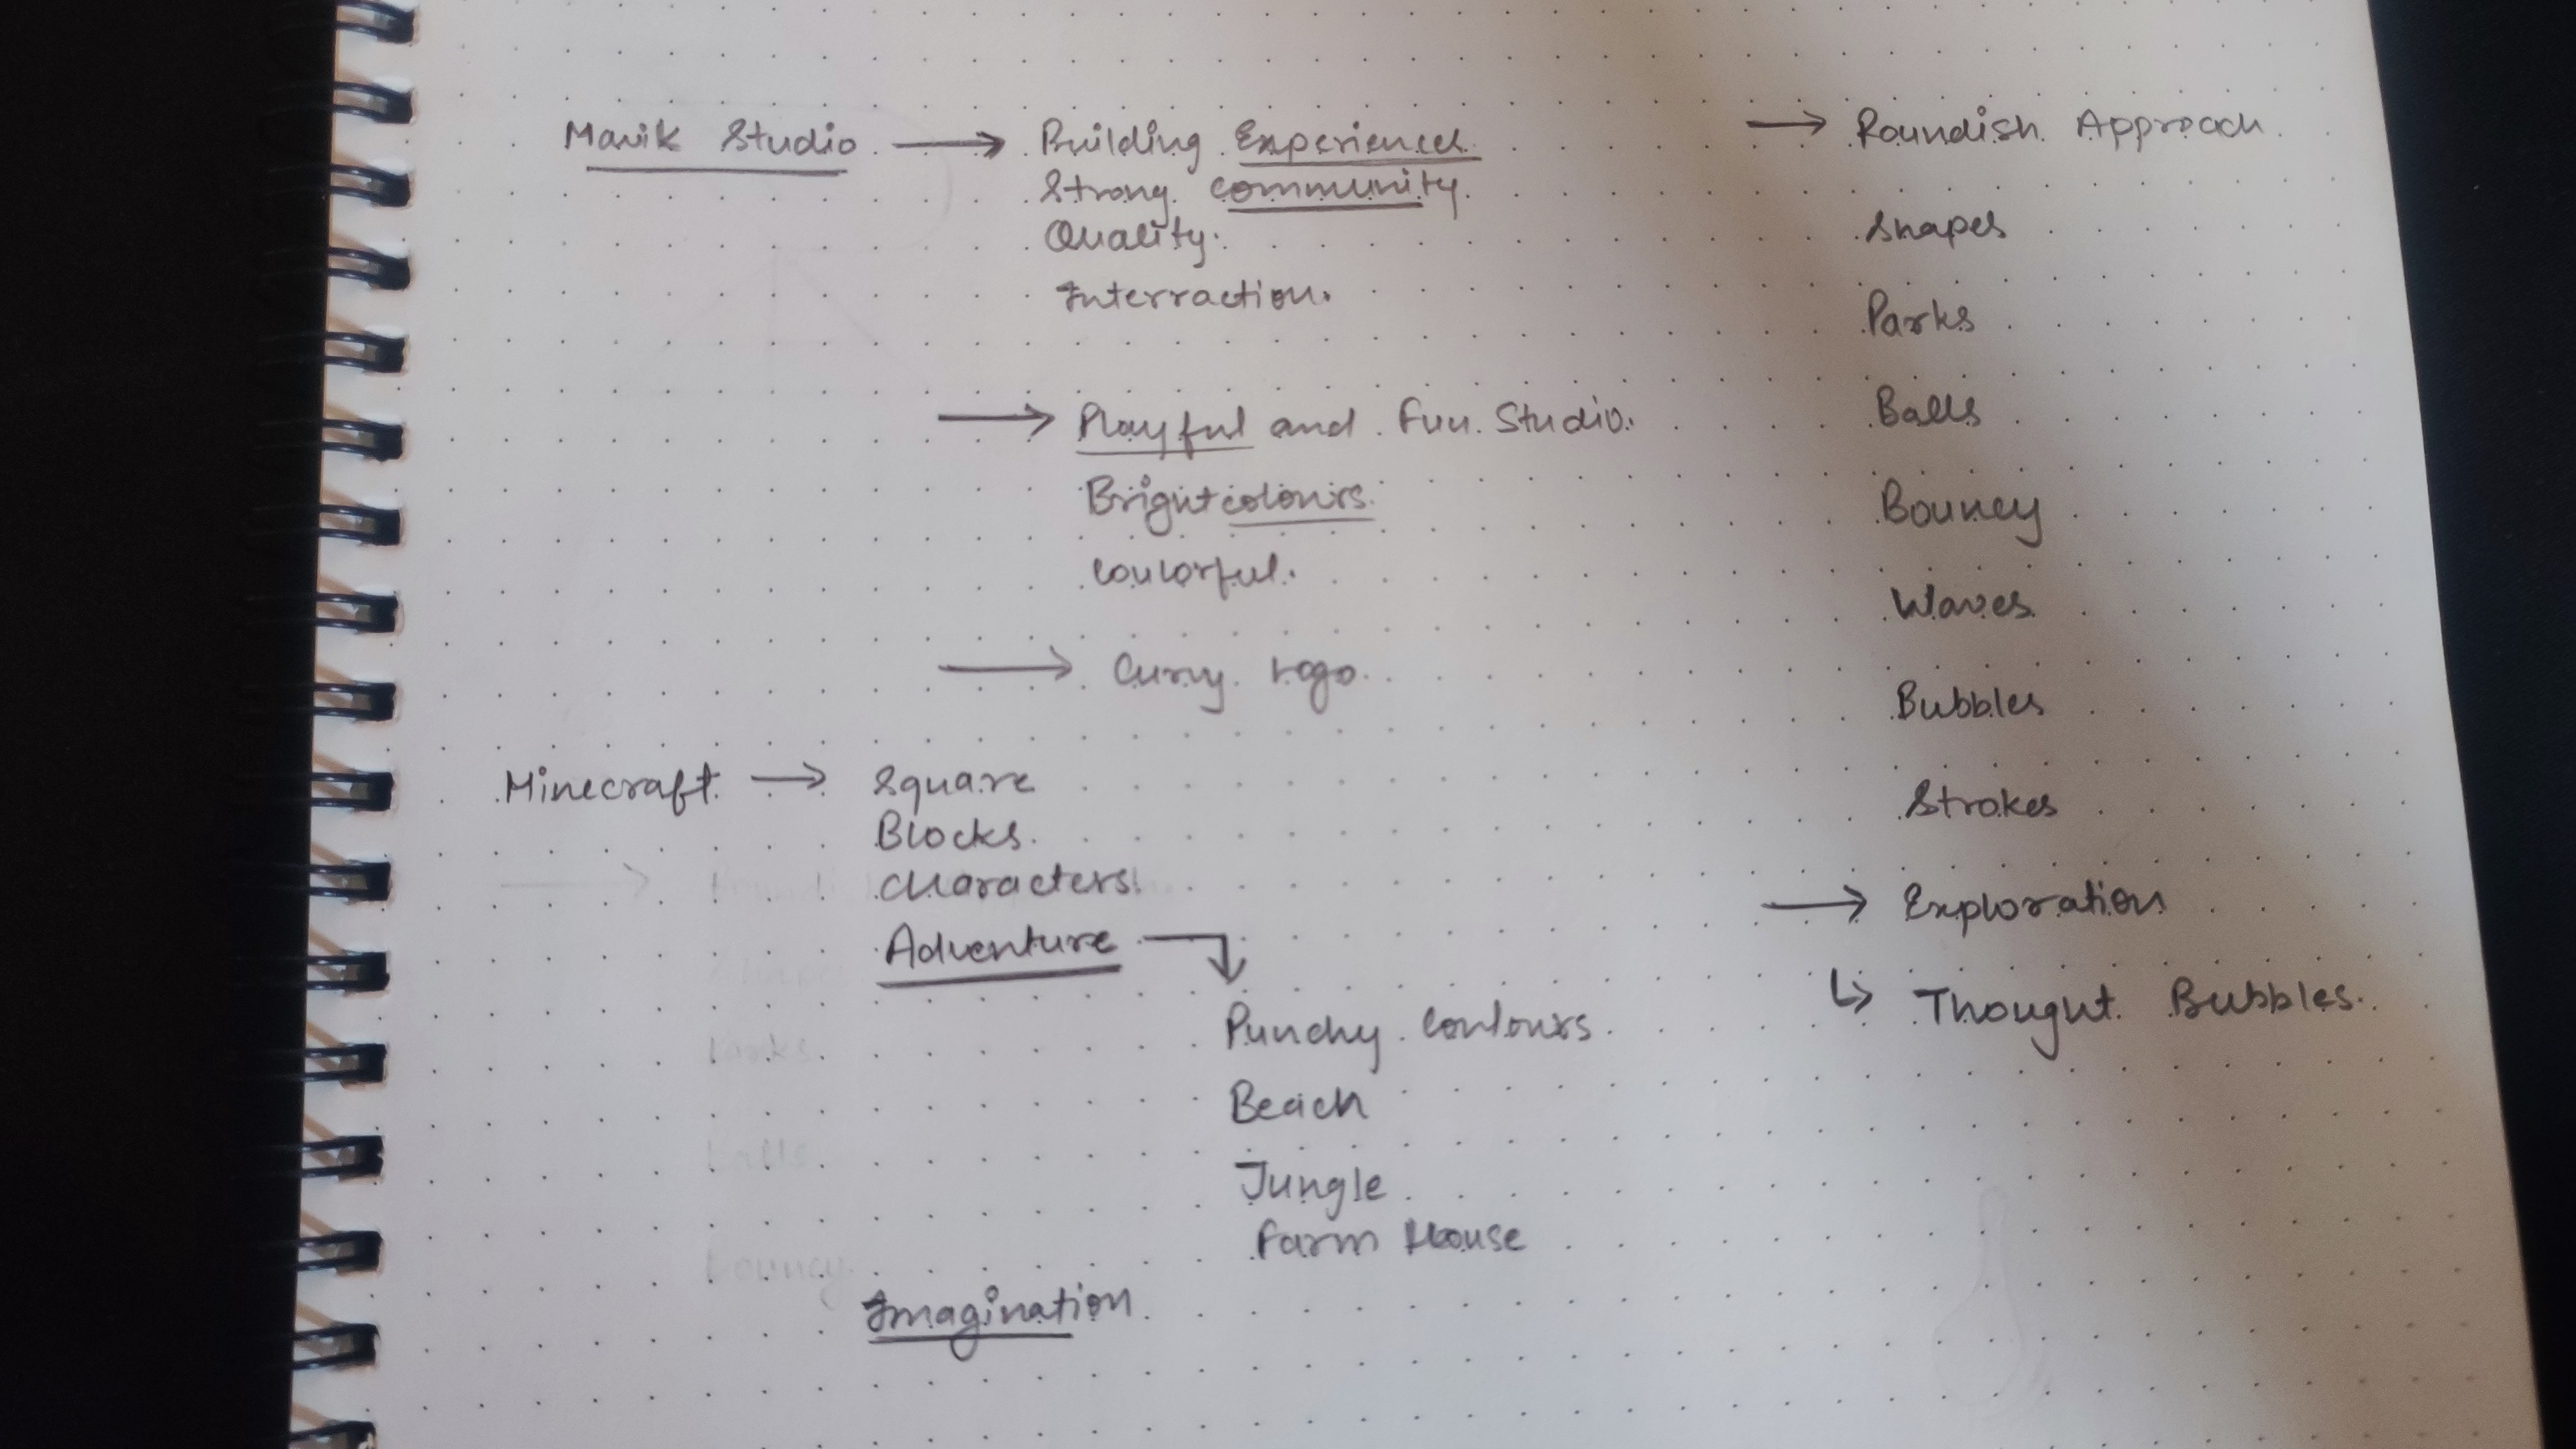 Mavik Studio → Building Experiences
Strong community.
Quality.
Interraction.
→ Playful and Fun Studio.
Bright colours.
Coulorful.
→ Curvy logo.
Minecraft → Square
Blocks.
Characters
Adventure
Punchy Coulours
Beach
Jungle
Farm House
Imagination
→ Roundish Approach
Shapes
Parks
Balls
Bouncy
Waves
Bubbles
Strokes
→ Exploration
↳ Thought Bubbles.